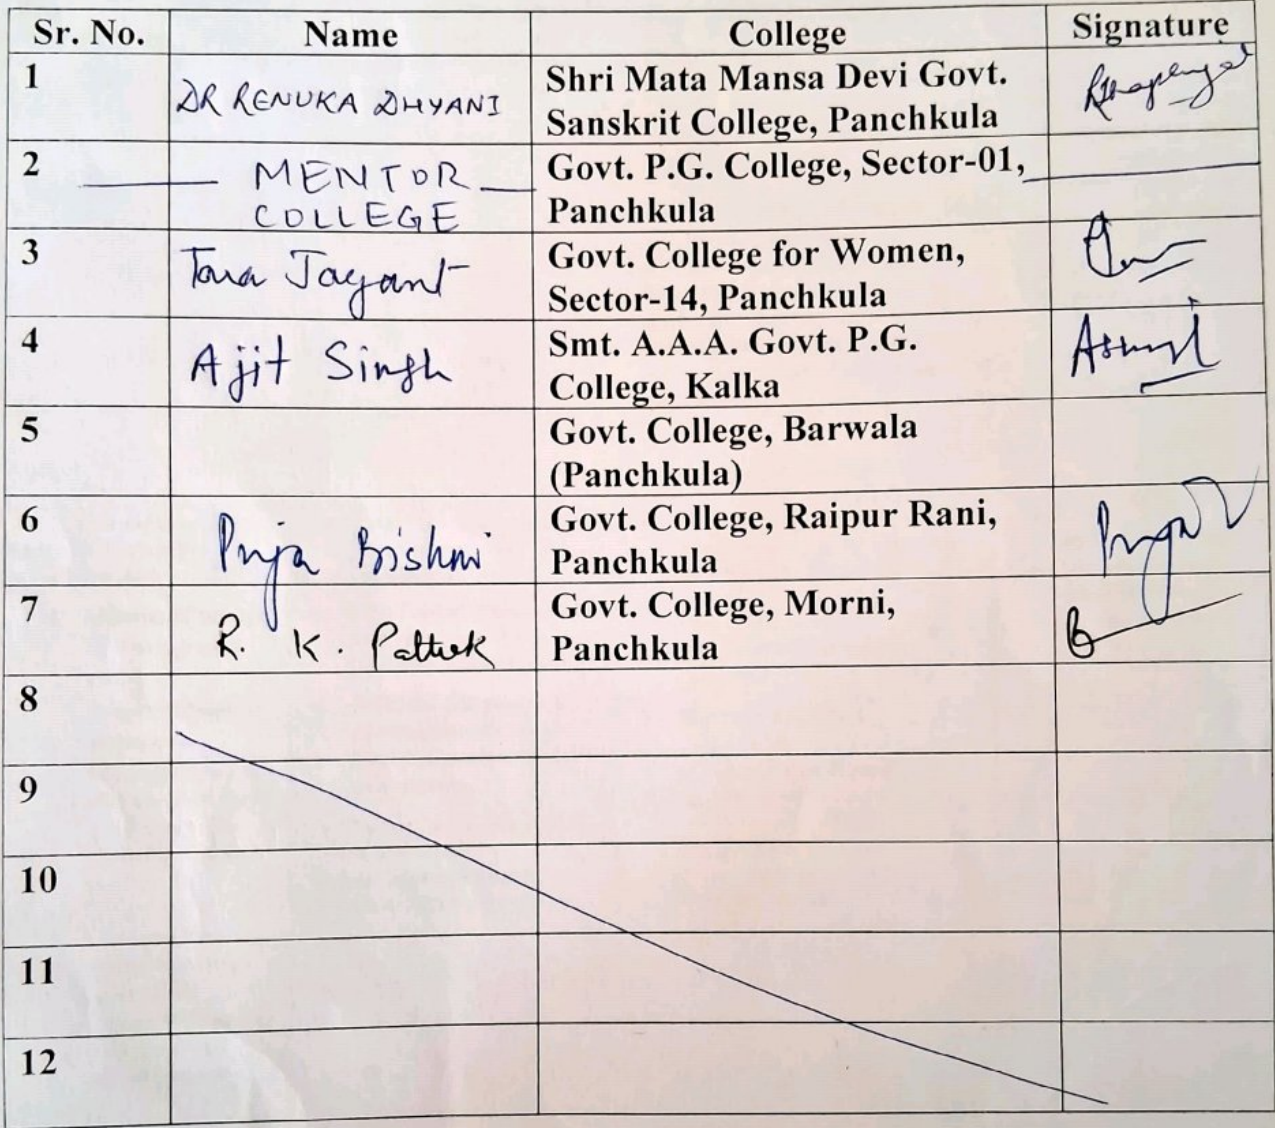 Sr. No. Name College Signature
1 DR RENUKA DHYANI Shri Mata Mansa Devi Govt.
Sanskrit College, Panchkula
2 MENTOR Govt. P.G. College, Sector-01,
COLLEGE Panchkula
3 Tara Jayant Govt. College for Women,
Sector-14, Panchkula
4 Ajit Singh Smt. A.A.A. Govt. P.G.
College, Kalka
5 Govt. College, Barwala
(Panchkula)
6 Puja Bishnoi Govt. College, Raipur Rani,
Panchkula
7 R. K. Pathak Govt. College, Morni,
Panchkula
8
9
10
11
12